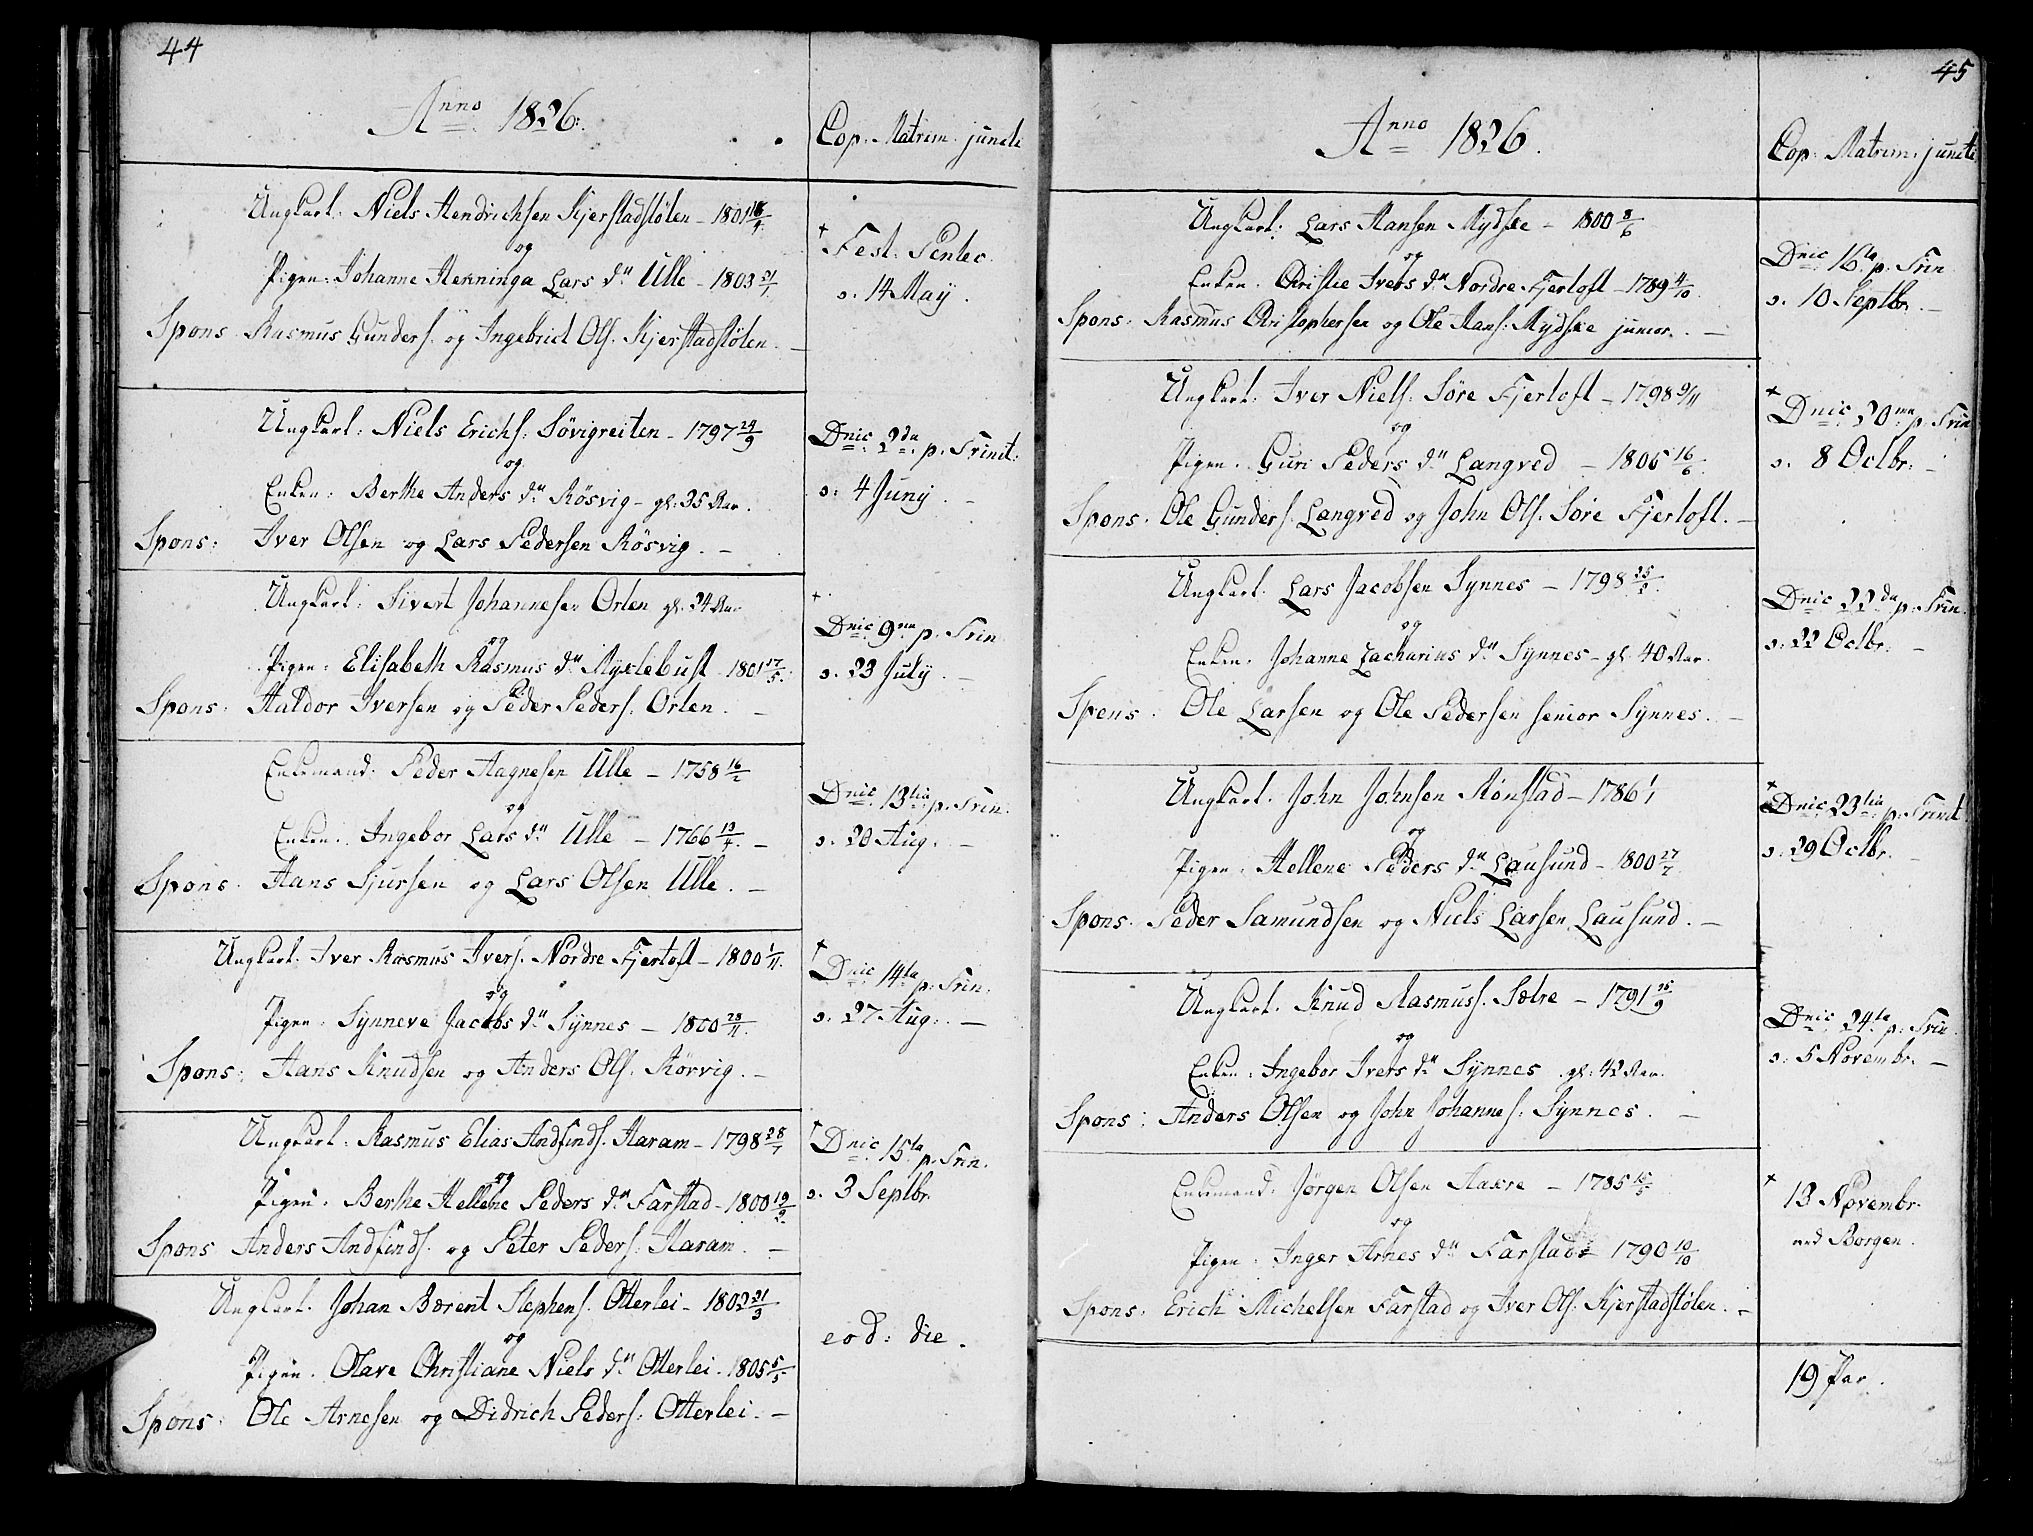 44
Anno 1826.
Cop: Matrim: juncti
Ungkarl: Niels Hendrichsen Kjerstadstölen - 1801 18/4
og
Pigen: Johanne Henninga Lars dr Ulle - 1803 31/1
Spons. Rasmus Gunders. og Ingebrict Ols. Kjerstadstölen. -
+
Fest: Pentec.
d. 14 May.
Ungkarl: Niels Erichs: Sövigreiten - 1797 24/9
og
Enken: Berthe Anders dr Rösvig - gl: 35 Aar.
Spons: Iver Olsen og Lars Pedersen Rösvig. -
Dnic 2da p. Trinit:
d: 4 Juny. -
Ungkarl: Sivert Johannesen Orten gl. 24 Aar
og
Pigen: Elisabeth Rasmus dr Myclebust - 1801 17/5.
Spons: Haldor Iversen og Peder Peders: Orten. -
+
Dnic 9na p. Trin.
d. 23 July. -
Enkemand: Peder Aagnesen Ulle - 1758 16/2
og
Enken: Ingebor Lars dr Ulle - 1766 13/4. -
Spons. Hans Sjursen og Lars Olsen Ulle. -
Dnic 13tia p. Trin:
d. 20 Aug: -
Ungkarl. Iver Rasmus Ivers. Nordre Fjertoft - 1800 1/11.
og
Pigen: Synneve Jacobs dr Synnes - 1800 28/11.
Spons: Hans Knudsen og Anders Ols. Rörvig. -
+
Dnic 14ta p. Trin:
d. 27 Aug: -
Ungkarl: Rasmus Elias Andfinds. Haram - 1798 28/7
og
Pigen. Berthe Hellene Peders dr Farstad - 1800 19/2.
Spons Anders Andfinds. og Peter Peders: Haram. -
+
Dnic 15ta p. Trin.
d. 3 Septbr.
Ungkarl. Johan Bærent Stephens. Otterlei - 1802 31/3
og
Pigen. Olave Christiane Niels dr Otterlei. 1805 5/5
Spons: Ole Arnesen og Didrich Peders: Otterlei. -
eod: die.
45
Anno 1826.
Cop: Matrim: juncti
Ungkarl: Lars Hansen Mydske - 1800 8/6
og
Enken. Christie Ivers dr Nordre Fjertoft - 1789 4/10.
Spons: Rasmus Christophersen og Ole Hans: Mydske junior. -
Dnic 16ta p. Trin
d. 10 Septbr. -
Ungkarl: Iver Niels: Söre Fjertoft - 1798 9/11
og
Pigen. Guri Peders dr Langved - 1805 16/6.
Spons. Ole Gunders. Langved og John Ols. Söre Fjertoft. -
+
Dnic 20ma p. Trin
d. 8 Octbr: -
Ungkarl. Lars Jacobsen Synnes - 1798 25/2.
og
Enken. Johanne Zacharias dr Synnes - gl. 40 Aar.
Spons. Ole Larsen og Ole Pedersen senior Synnes. -
Dnic 22da p: Trin.
d. 22 Octbr. -
Ungkarl. John Johnsen Rönstad - 1786 1/1
og
Pigen. Hellene Peders dr Lausund - 1800 27/7.
Spons. Peder Samundsen og Niels Larsen Lausund. -
+
Dnic 23tia p: Trinit
d. 29 Octbr. -
Ungkarl. Knud Rasmuss. Sætre - 1791 25/9
og
Enken: Ingebor Ivers dr Synnes gl: 42 Aar.
Spons: Anders Olsen og John Johannes: Synnes. -
Dnic 24ta p: Trin.
d. 5 Novembr. -
Enkemand. Jörgen Olsen Aakre - 1785 15/5
og
Pigen: Inger Arnes dr Farstad - 1790 10/10
Spons: Erich Michelsen Farstad og Iver Ols: Kjerstadstölen. -
+
13 Novembr.
ved Borgen.
19 Par.